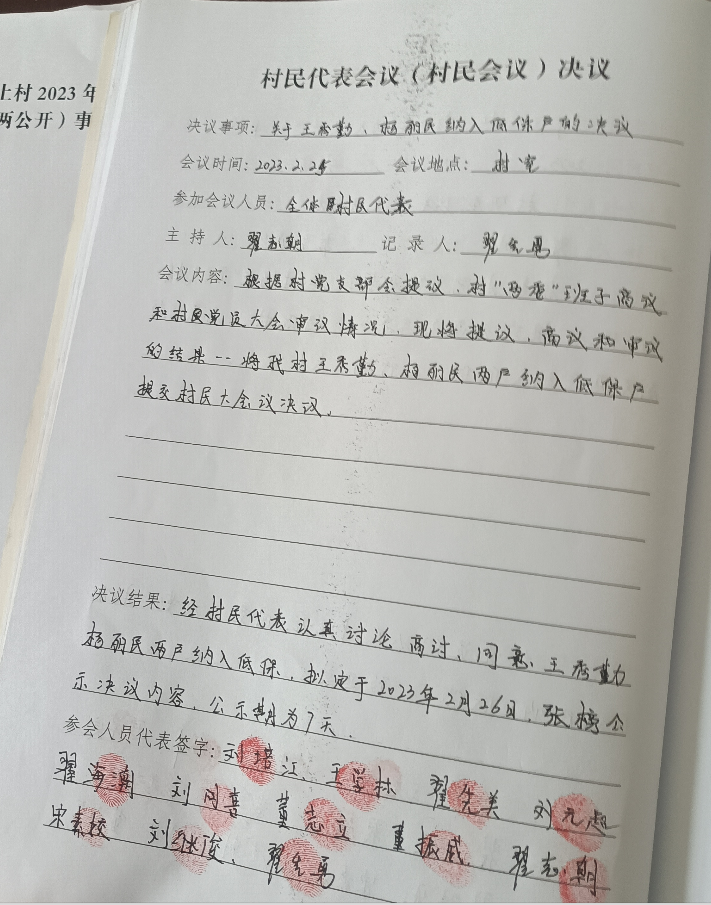 上村 2023 年
两公开）事
村民代表会议（村民会议）决议
决议事项：关于王秀勤、杨丽民纳入低保户的决议
会议时间：2023.2.25 会议地点：村室
参加会议人员：全体村民代表
主 持 人：翟志朝 记 录 人：翟先勇
会议内容：根据村党支部会提议、村“两委”班子商议
和村民党员大会审议情况，现将提议、商议和审议
的结果--将我村王秀勤、杨丽民两户纳入低保户
提交村民大会议决议。
决议结果：经村民代表认真讨论商讨、同意、王秀勤
杨丽民两户纳入低保，拟定于2023年2月26日，张榜公
示决议内容，公示期为7天.
参会人员代表签字：刘培江、王学林 翟先美 刘元超
翟海潮 刘同喜 董志立 董振威 翟志朝
宋素校 刘继俊、翟先勇